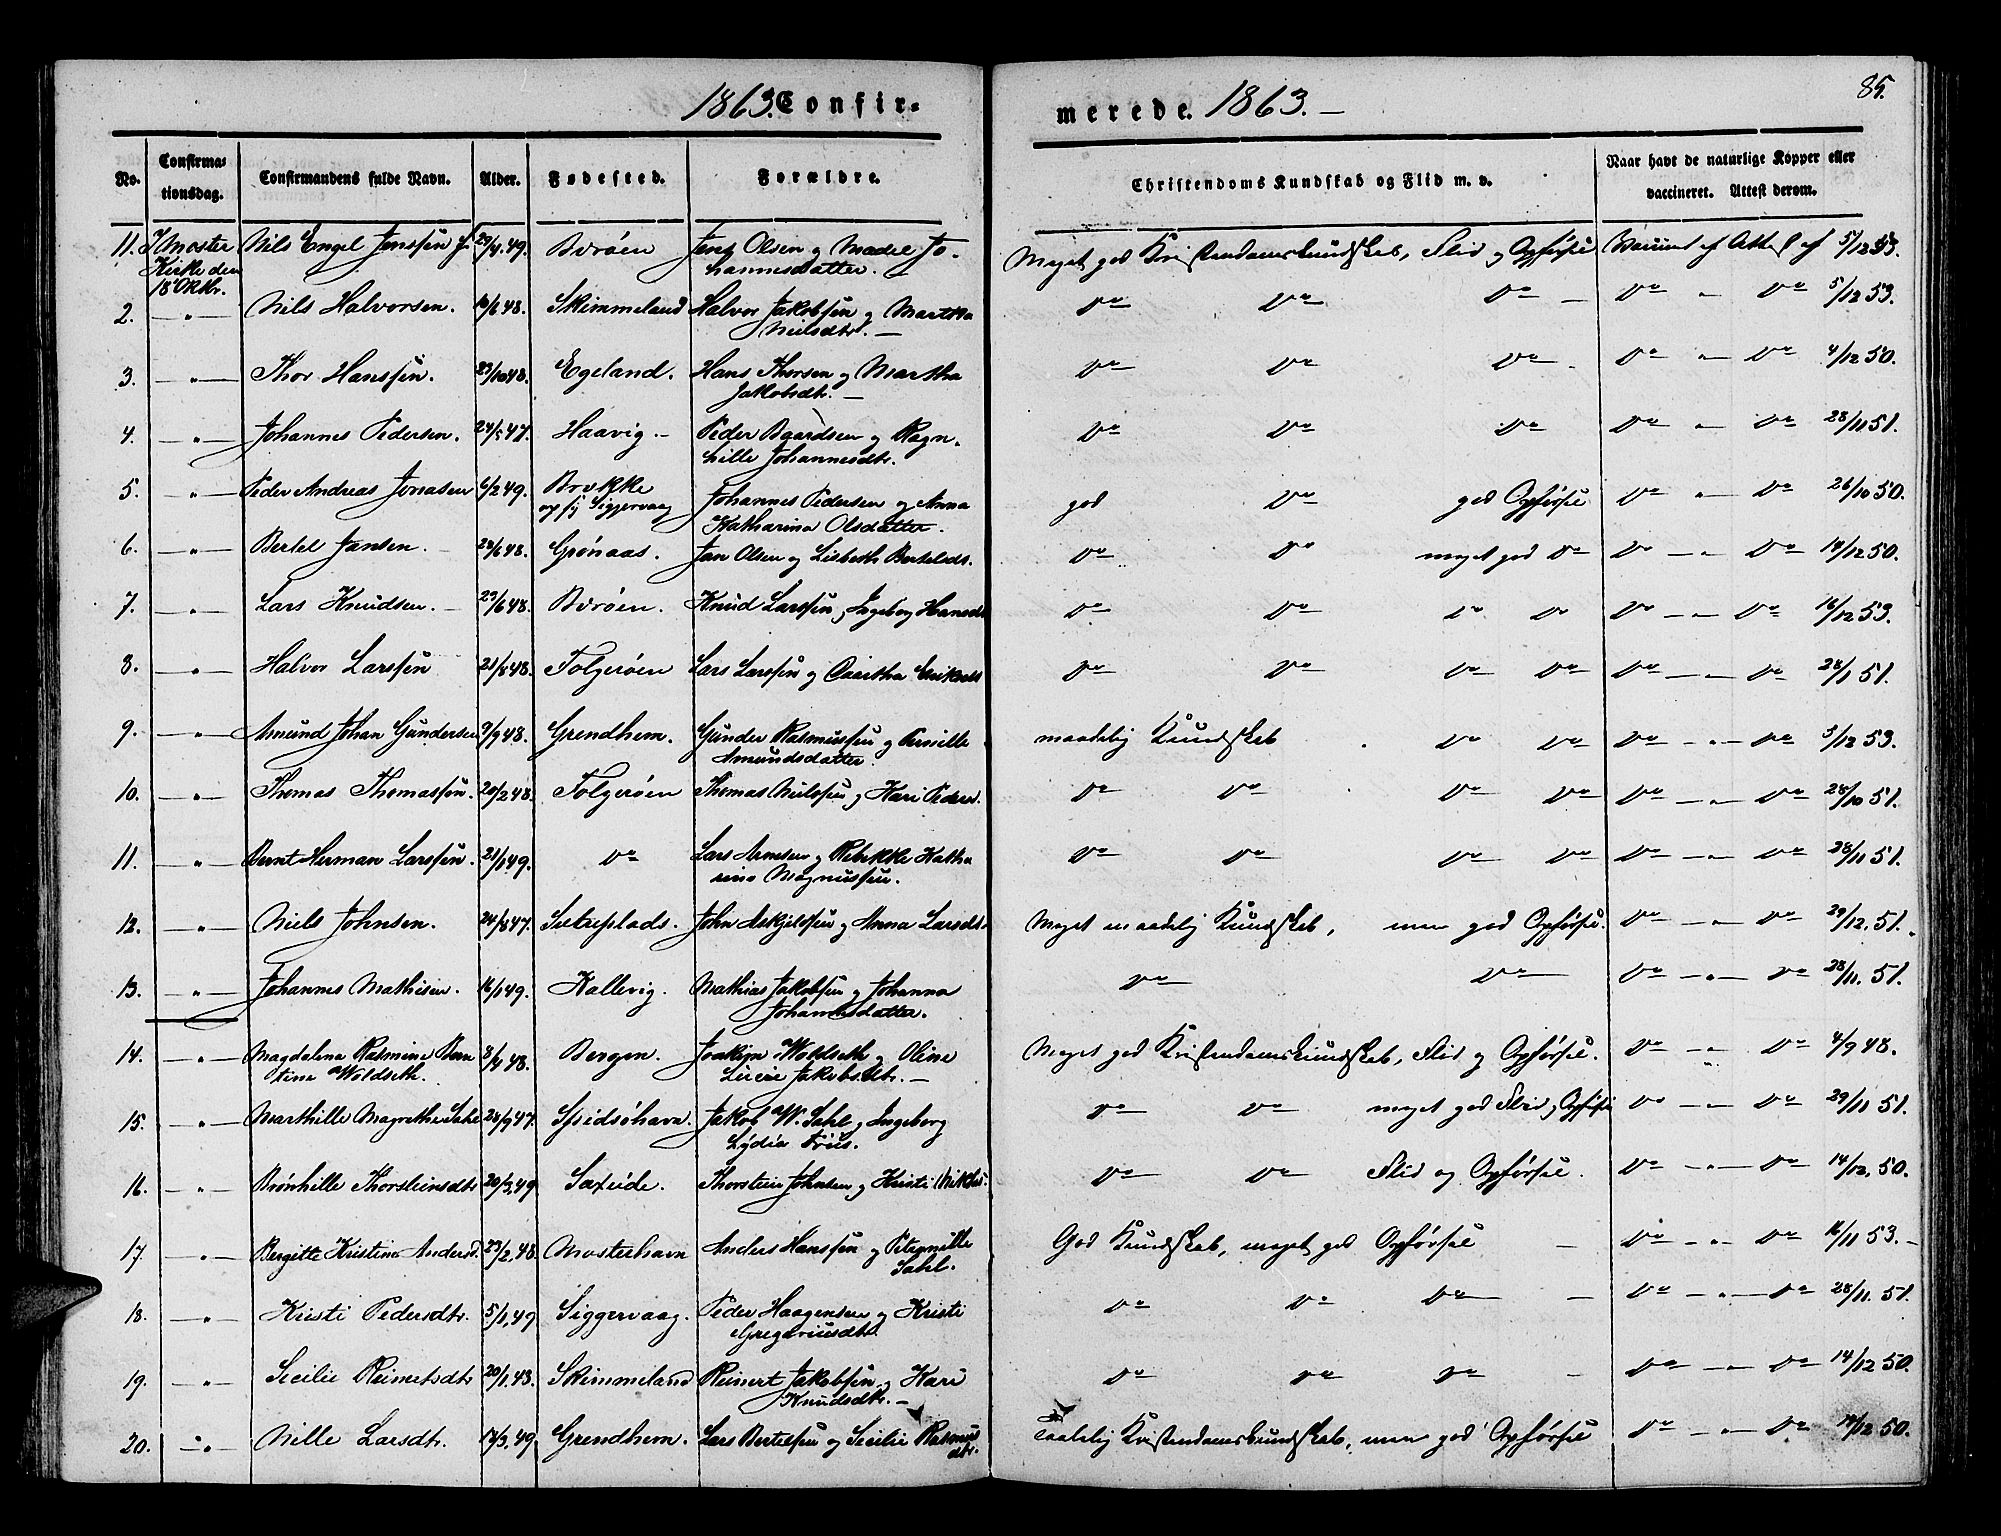 1863. Confir-
merede. 1863. —
85.
No.
Confirma-
tionsdag.
Confirmandens fulde Navn.
Alder.
Fødested.
Forældre.
Christendoms Kundskab og Flid m. v.
Naar havt de naturlige Kopper eller
vaccineret. Attest derom.
11. I Moster Nils Engel Jenssen 29/4.49. Børøen Jens Olsen og Madel Jo- Meget god Kristendomskundskab, Flid og Opførsel Vaccineret af Attest af 5/12 53.
Kirke den hannesdatter.
18 Oktbr.
2. — " — Nils Halvorsen. 10/6 48. Skimmeland Halvor Jakobsen og Martha Do Do Do — Do " Do 5/12 53.
Neilsdtr. —
3. — " — Thor Hanssen. 23/10 48. Egeland. Hans Thorsen og Martha Do Do Do Do " Do 4/12 50.
Jakobsdtr. —
4. — " — Johannes Pedersen. 24/5 47. Haavig. — Peder Baardsen og Ragn- Do Do Do Do " Do 28/11 51.
hille Johannesdtr.
5. — " — Peder Andreas Jonasen 6/2 49. Brekke Johannes Pedersen og Anna god Do god Opførsel Do " Do 26/10 50.
opf. i Siggervaag Katharina Olsdatter.
6. — " — Bertel Jansen. 29/6 48. Grønaas. Jan Olsen og Lisbeth Bertelsdt. Do Do meget god Do Do — " — Do 14/12 50.
7. — " — Lars Knudsen. — 29/6 48. Børøen. Knud Larssen, Ingeborg Hansdt Do Do Do Do Do — " — Do 16/12 53.
8. — " — Halvor Larssen 21/8 48. Folgerøen Lars Larssen og Martha Eriksdt Do Do Do Do Do — " — Do 28/1 51.
9. — " — Amund Johan Gundersen 9/9 48. Grendhem. Gunder Rasmussen og Pernille maadelig Kundskab Do Do Do — " — Do 5/12 53.
Amundsdatter.
10. — " — Thomas Thomassen. 20/2 48. Folgerøen Thomas Neilssen og Kari Peders. Do Do Do Do Do — " — Do 28/10 51.
11. — " — Bernt Herman Larssen. 21/1 49. Do Lars Arnesen og Rebekke Katha Do Do Do Do Do — " — Do 28/11 51.
rina Magnussen.
12. — " — Niels Johnsen. 24/8 47. Sætreplads. John Askjelssen og Anna Larsdt. Meget maadelig Kundskab, men god Opførsel. Do — " — Do 29/12. 51.
13. — " — Johannes Mathisen. 16/1 49. Kallevig. Mathias Jakobsen og Johanna Do Do Do — " — Do 28/11. 51.
Johannesdatter.
14. — " — Magdalena Rasmine Bern 8/4 48. Bergen. Joakim Woldseth og Oline Meget god Kristendomskundskab, Flid og Opførsel. Do — " — Do 4/9 48.
tine Woldseth. Lucie Jakobsdtr. —
15. — " — Marthille Magrethe Sahl 24/9 47. Speidsøhavn. Jakob W. Sahl og Ingeborg Do Do meget god Flid og Opførsel Do — " — Do 29/11 51.
Lydia Friis.
16. — " — Brønhille Thorsteinsdtr 20/3. 49. Sæteide. Thorstein Johnsen og Kristi Do Do Flid og Opførsel. Do — " — Do 14/12. 50.
17. — " — Bergitte Kristine Andersd. 23/2. 48. Mosterhavn Anders Hanssen og Peternille God Kundskab, meget god Opførsel — Do — " — Do 16/11 53. —
Sahl.
18. — " — Kristi Pedersdtr. 5/1. 49 Siggervaag. Peder Haagensen og Kristi Do Do Do — Do — " — Do 28/11. 51.
Gregoriusdtr.
19. — " — Secilie Reinertsdtr 20/1. 48. Skimmeland Reinert Jakobsen og Kari Do Do Do — Do — " — Do 14/12 50.
Knudsdtr. —
20. — " — Nille Larsdtr. 17/3. 49. Grendhem. Lars Bertelssen og Secilie Rasmus Taalelig Kristendomskundskab, men god Opførsel Do — " — Do 14/12 50.
dtr.